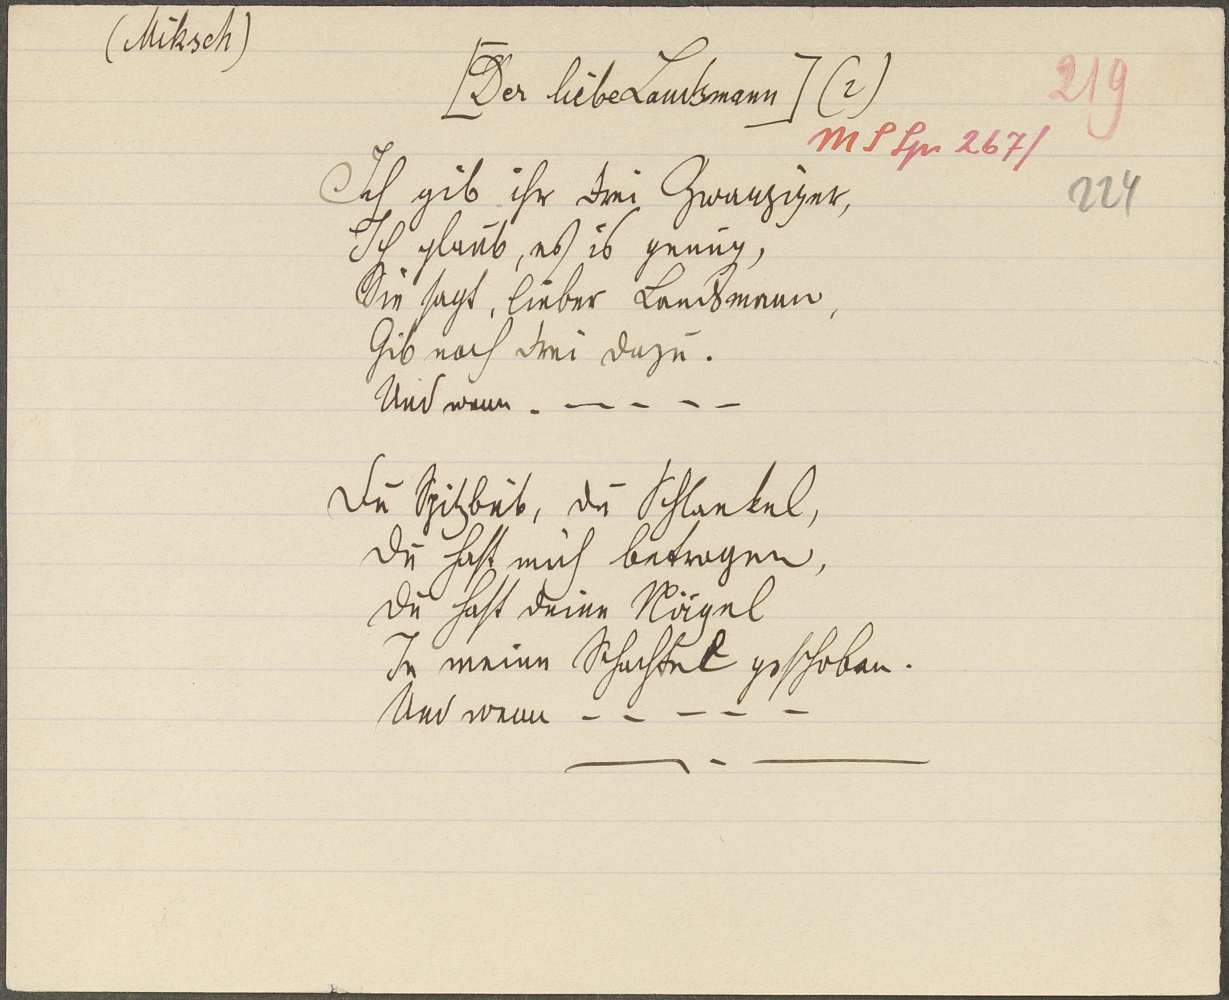 (Miksch)
[Der liebe Landsmann] (2)
219
M S Spr 267/
224
Ich gib ihr drei Zwanziger,
Ich glaub, es is genug,
Sie sagt, lieber Landsmann,
Gib noch drei dazu.
Und wenn . — – – –
Du Spitzbub, du Schlankel,
Du hast mich betrogen,
Du hast deine Nägel
In meine Schachtel geschoben.
Und wenn – – – – –